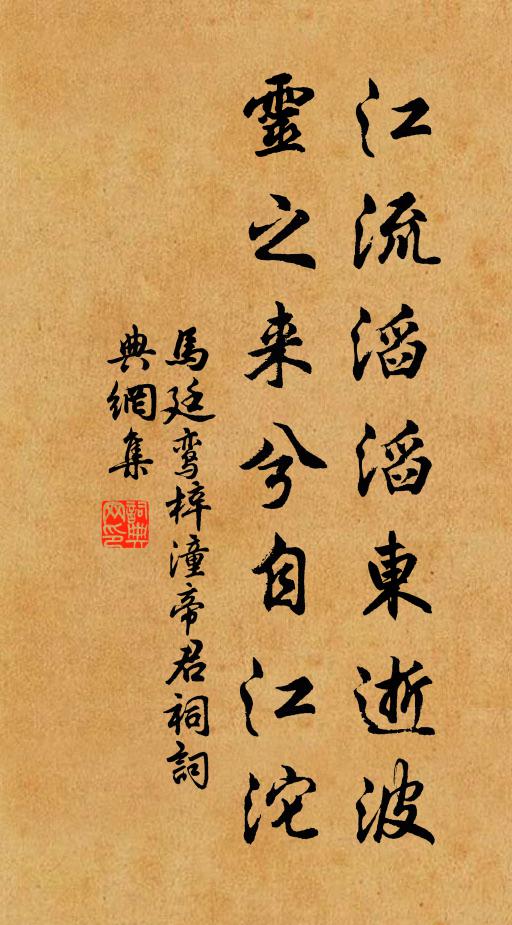 江流滔滔東逝波
靈之来兮自江沱
馬廷鸾梓潼帝君祠詞
典網集
詞典网印